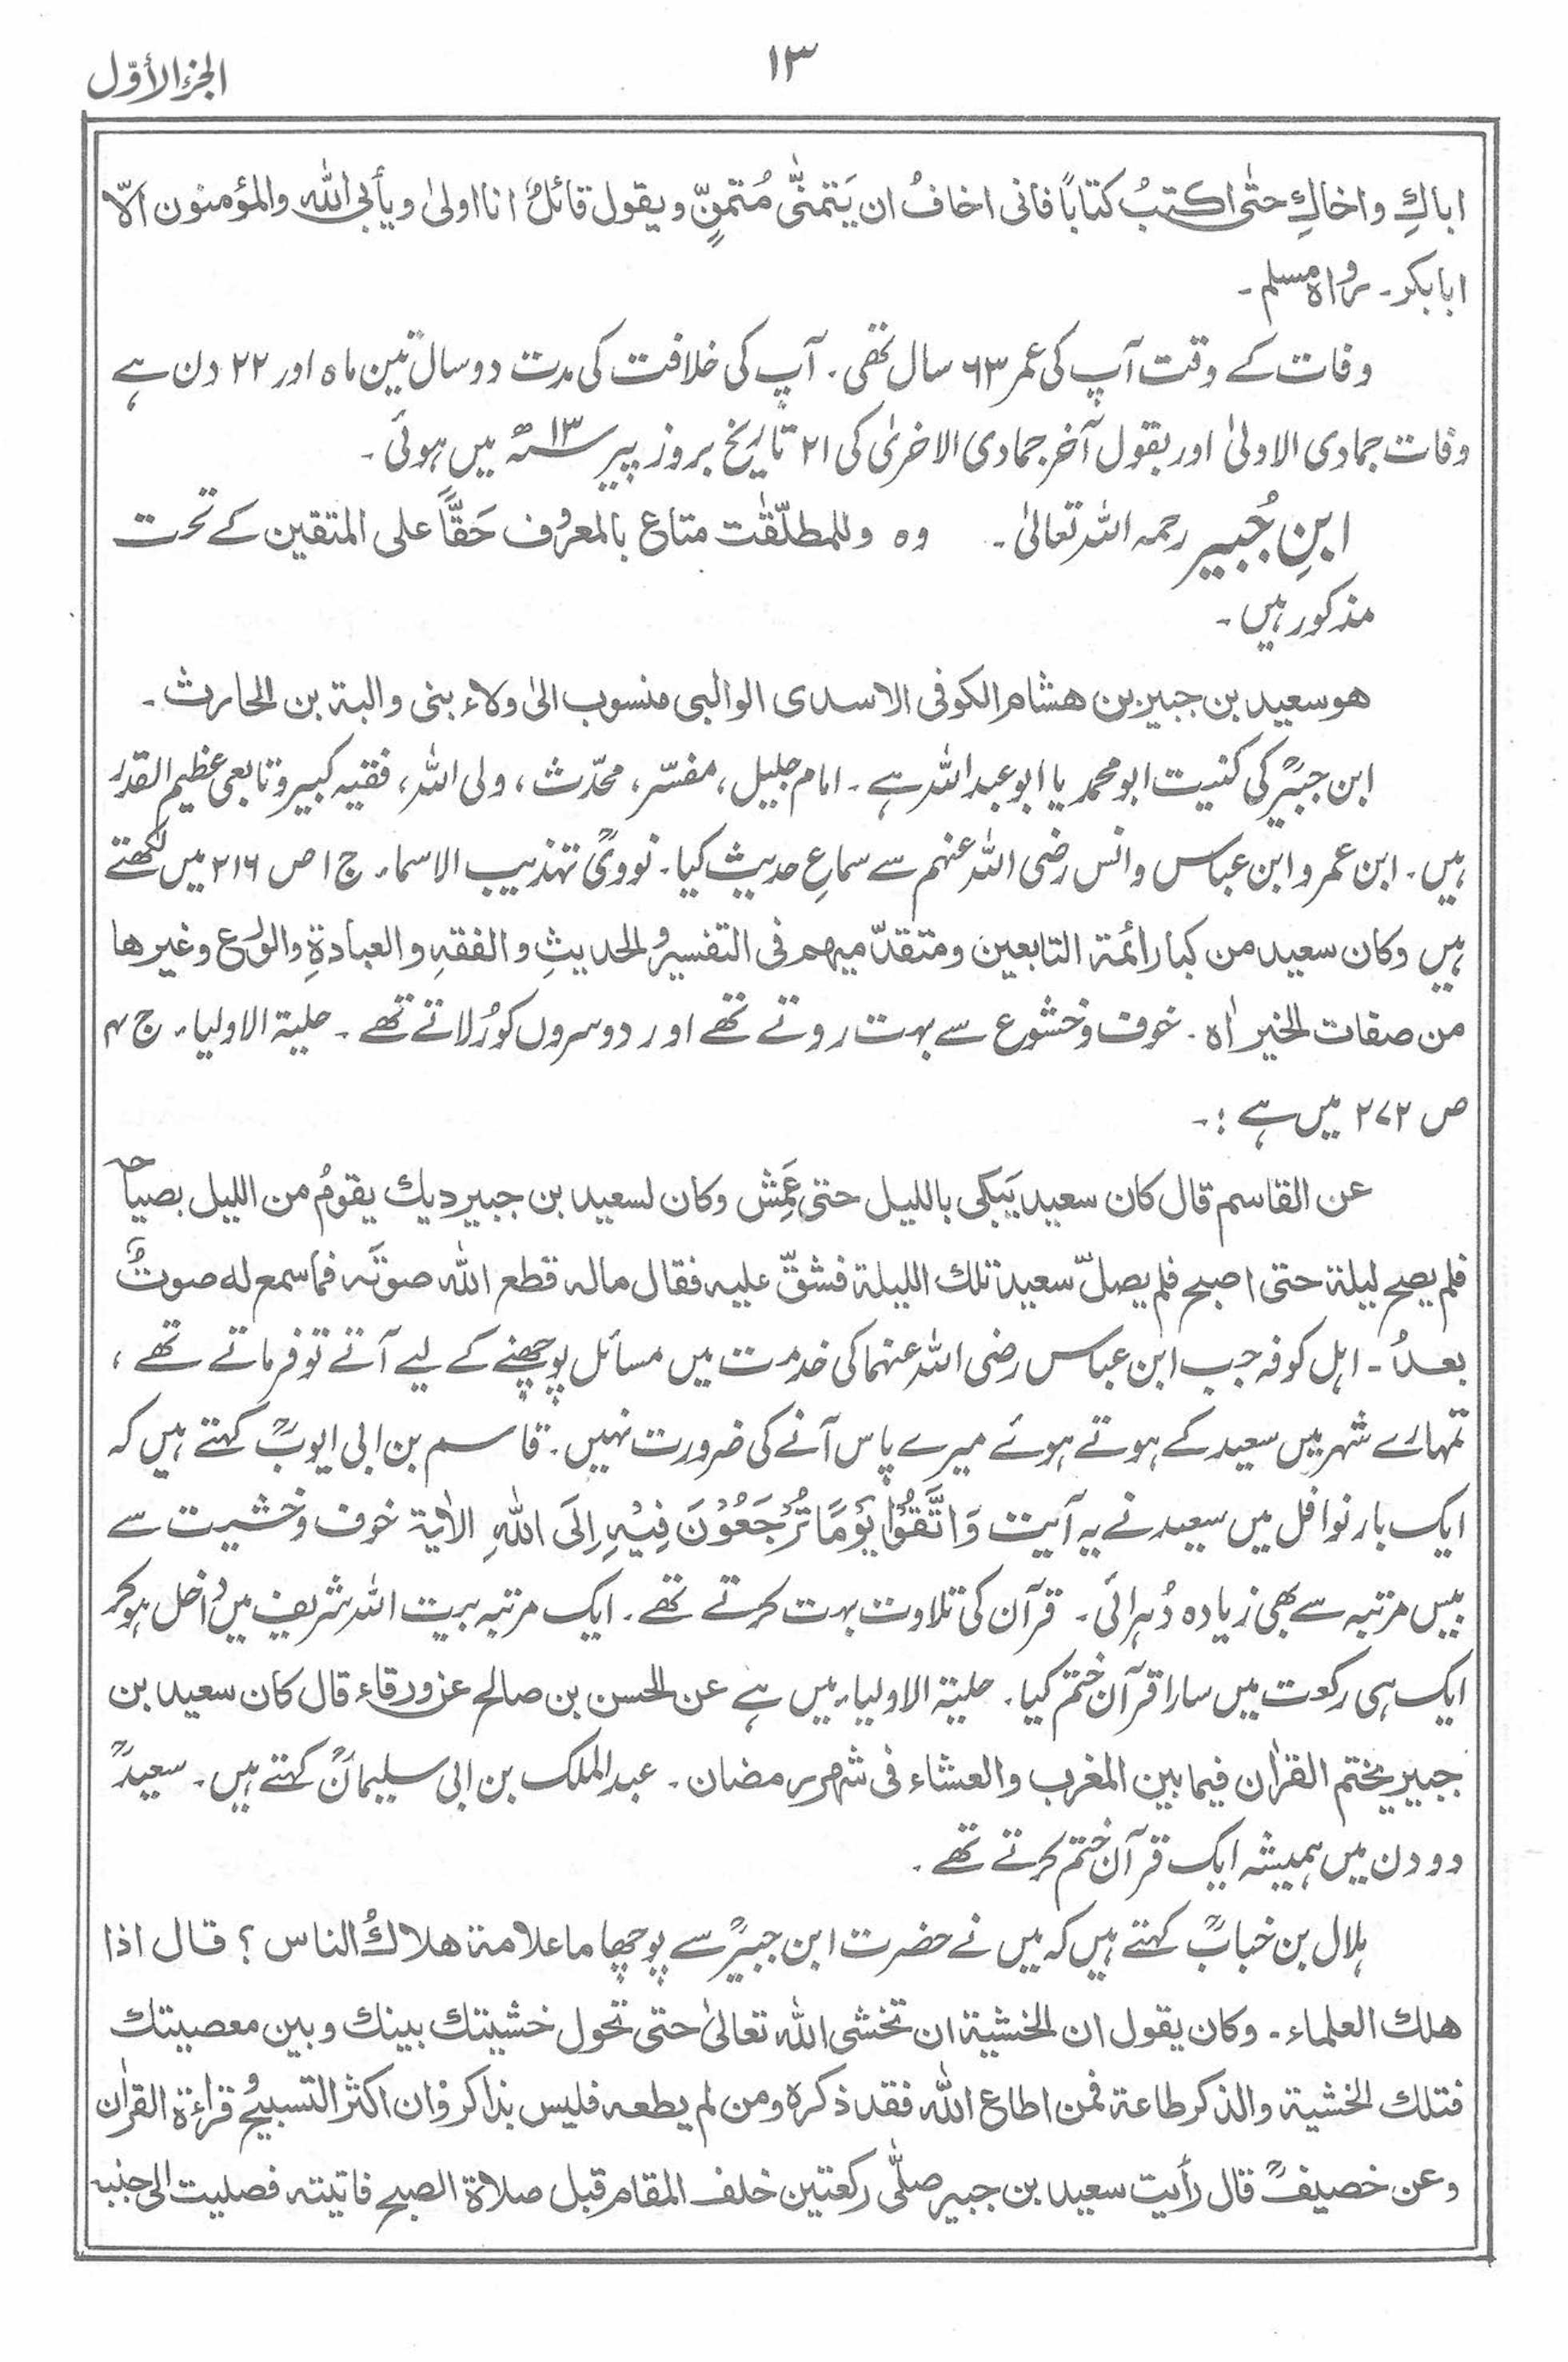 الجزء الأوّل
١٣
اباكِ واخاكِ حتٰی اكتبُ كتابًا فانی اخافُ ان يَتمنّٰى مُتمنٍّ ويقول قائلٌ انا اولیٰ ويأبى الله والمؤمنون الّا
ابابكر ـ رواه مسلم ـ
وفات کے وقت آپ کی عمر ٦٣ سال تھی ۔ آپ کی خلافت کی مدت دو سال تین ماہ اور ٢٢ دن ہے
وفات جمادی الاولیٰ اور بقول آخر جمادی الاخریٰ کی ٢١ تاریخ بروز پیر سنہ ١٣ ھ میں ہوئی ۔
ابنِ جُبیر رحمہ اللہ تعالیٰ ۔ وہ وللمطلّقٰت متاع بالمعروف حَقًّا علی المتقین کے تحت
مذکور ہیں ۔
هو سعيد بن جبير بن هشام الكوفى الاسدى الوالبى منسوب الىٰ ولاء بنى والبة بن الحارث ـ
ابن جبیرؒ کی کنیت ابو محمد یا ابو عبد اللہ ہے ۔ امام جلیل ، مفسّر ، محدّث ، ولی اللہ ، فقیہ کبیر و تابعی عظیم القدر
ہیں ۔ ابن عمر و ابن عباس و انس رضی اللہ عنہم سے سماعِ حدیث کیا ۔ نوویؒ تہذیب الاسماء ج ١ ص ٢١٦ میں لکھتے
ہیں وكان سعيد من كبار أئمة التابعين ومتقدّميهم فى التفسير والحديثِ والفقهِ والعبادةِ والورع وغيرها
من صفات الخير اٰه ۔ خوف و خشوع سے بہت روتے تھے اور دوسروں کو رُلاتے تھے ۔ حلیۃ الاولیاء ج ۴
ص ٢٧٢ میں ہے :۔
عن القاسم قال كان سعيد يَبكى بالليل حتى عَمِشَ وكان لسعيد بن جبير ديك يقومُ من الليل بصياحه
فلم يصح ليلة حتى اصبح فلم يصلّ سعيد تلك الليلة فشقّ عليه فقال ماله قطع الله صوتَه فما سمع له صوتٌ
بعدُ ۔ اہل کوفہ جب ابن عباس رضی اللہ عنہما کی خدمت میں مسائل پوچھنے کے لیے آتے تو فرماتے تھے ،
تمہارے شہر میں سعید کے ہوتے ہوئے میرے پاس آنے کی ضرورت نہیں ۔ قاسم بن ابی ایوبؒ کہتے ہیں کہ
ایک بار نوافل میں سعید نے یہ آیت وَاتَّقُوْا یَوْمًا تُرْجَعُوْنَ فِیْهِ اِلَی اللهِ الاٰیة خوف و خشیت سے
بیس مرتبہ سے بھی زیادہ دُہرائی ۔ قرآن کی تلاوت بہت کرتے تھے ۔ ایک مرتبہ بیت اللہ شریف میں داخل ہوکر
ایک ہی رکعت میں سارا قرآن ختم کیا ۔ حلیۃ الاولیاء میں ہے عن الحسن بن صالح عن ورقاء قال كان سعيد بن
جبير يختم القراٰن فيما بين المغرب والعشاء فى شهر رمضان ۔ عبد الملک بن ابی سلیمانؒ کہتے ہیں ۔ سعیدؒ
دو دن میں ہمیشہ ایک قرآن ختم کرتے تھے ۔
ہلال بن خبابؒ کہتے ہیں کہ میں نے حضرت ابن جبیرؒ سے پوچھا ما علامة هلاك الناس ؟ قال اذا
هلك العلماء ـ وكان يقول ان الخشية ان تخشى الله تعالىٰ حتى تحول خشيتك بينك وبين معصيتك
فتلك الخشية والذكر طاعة فمن اطاع الله فقد ذكره ومن لم يطعه فليس بذاكر وان اكثر التسبيح وقراءة القراٰن
وعن خصيفؒ قال رأيت سعيد بن جبير صلّٰى ركعتين خلف المقام قبل صلاة الصبح فاتيته فصليت الى جنبه